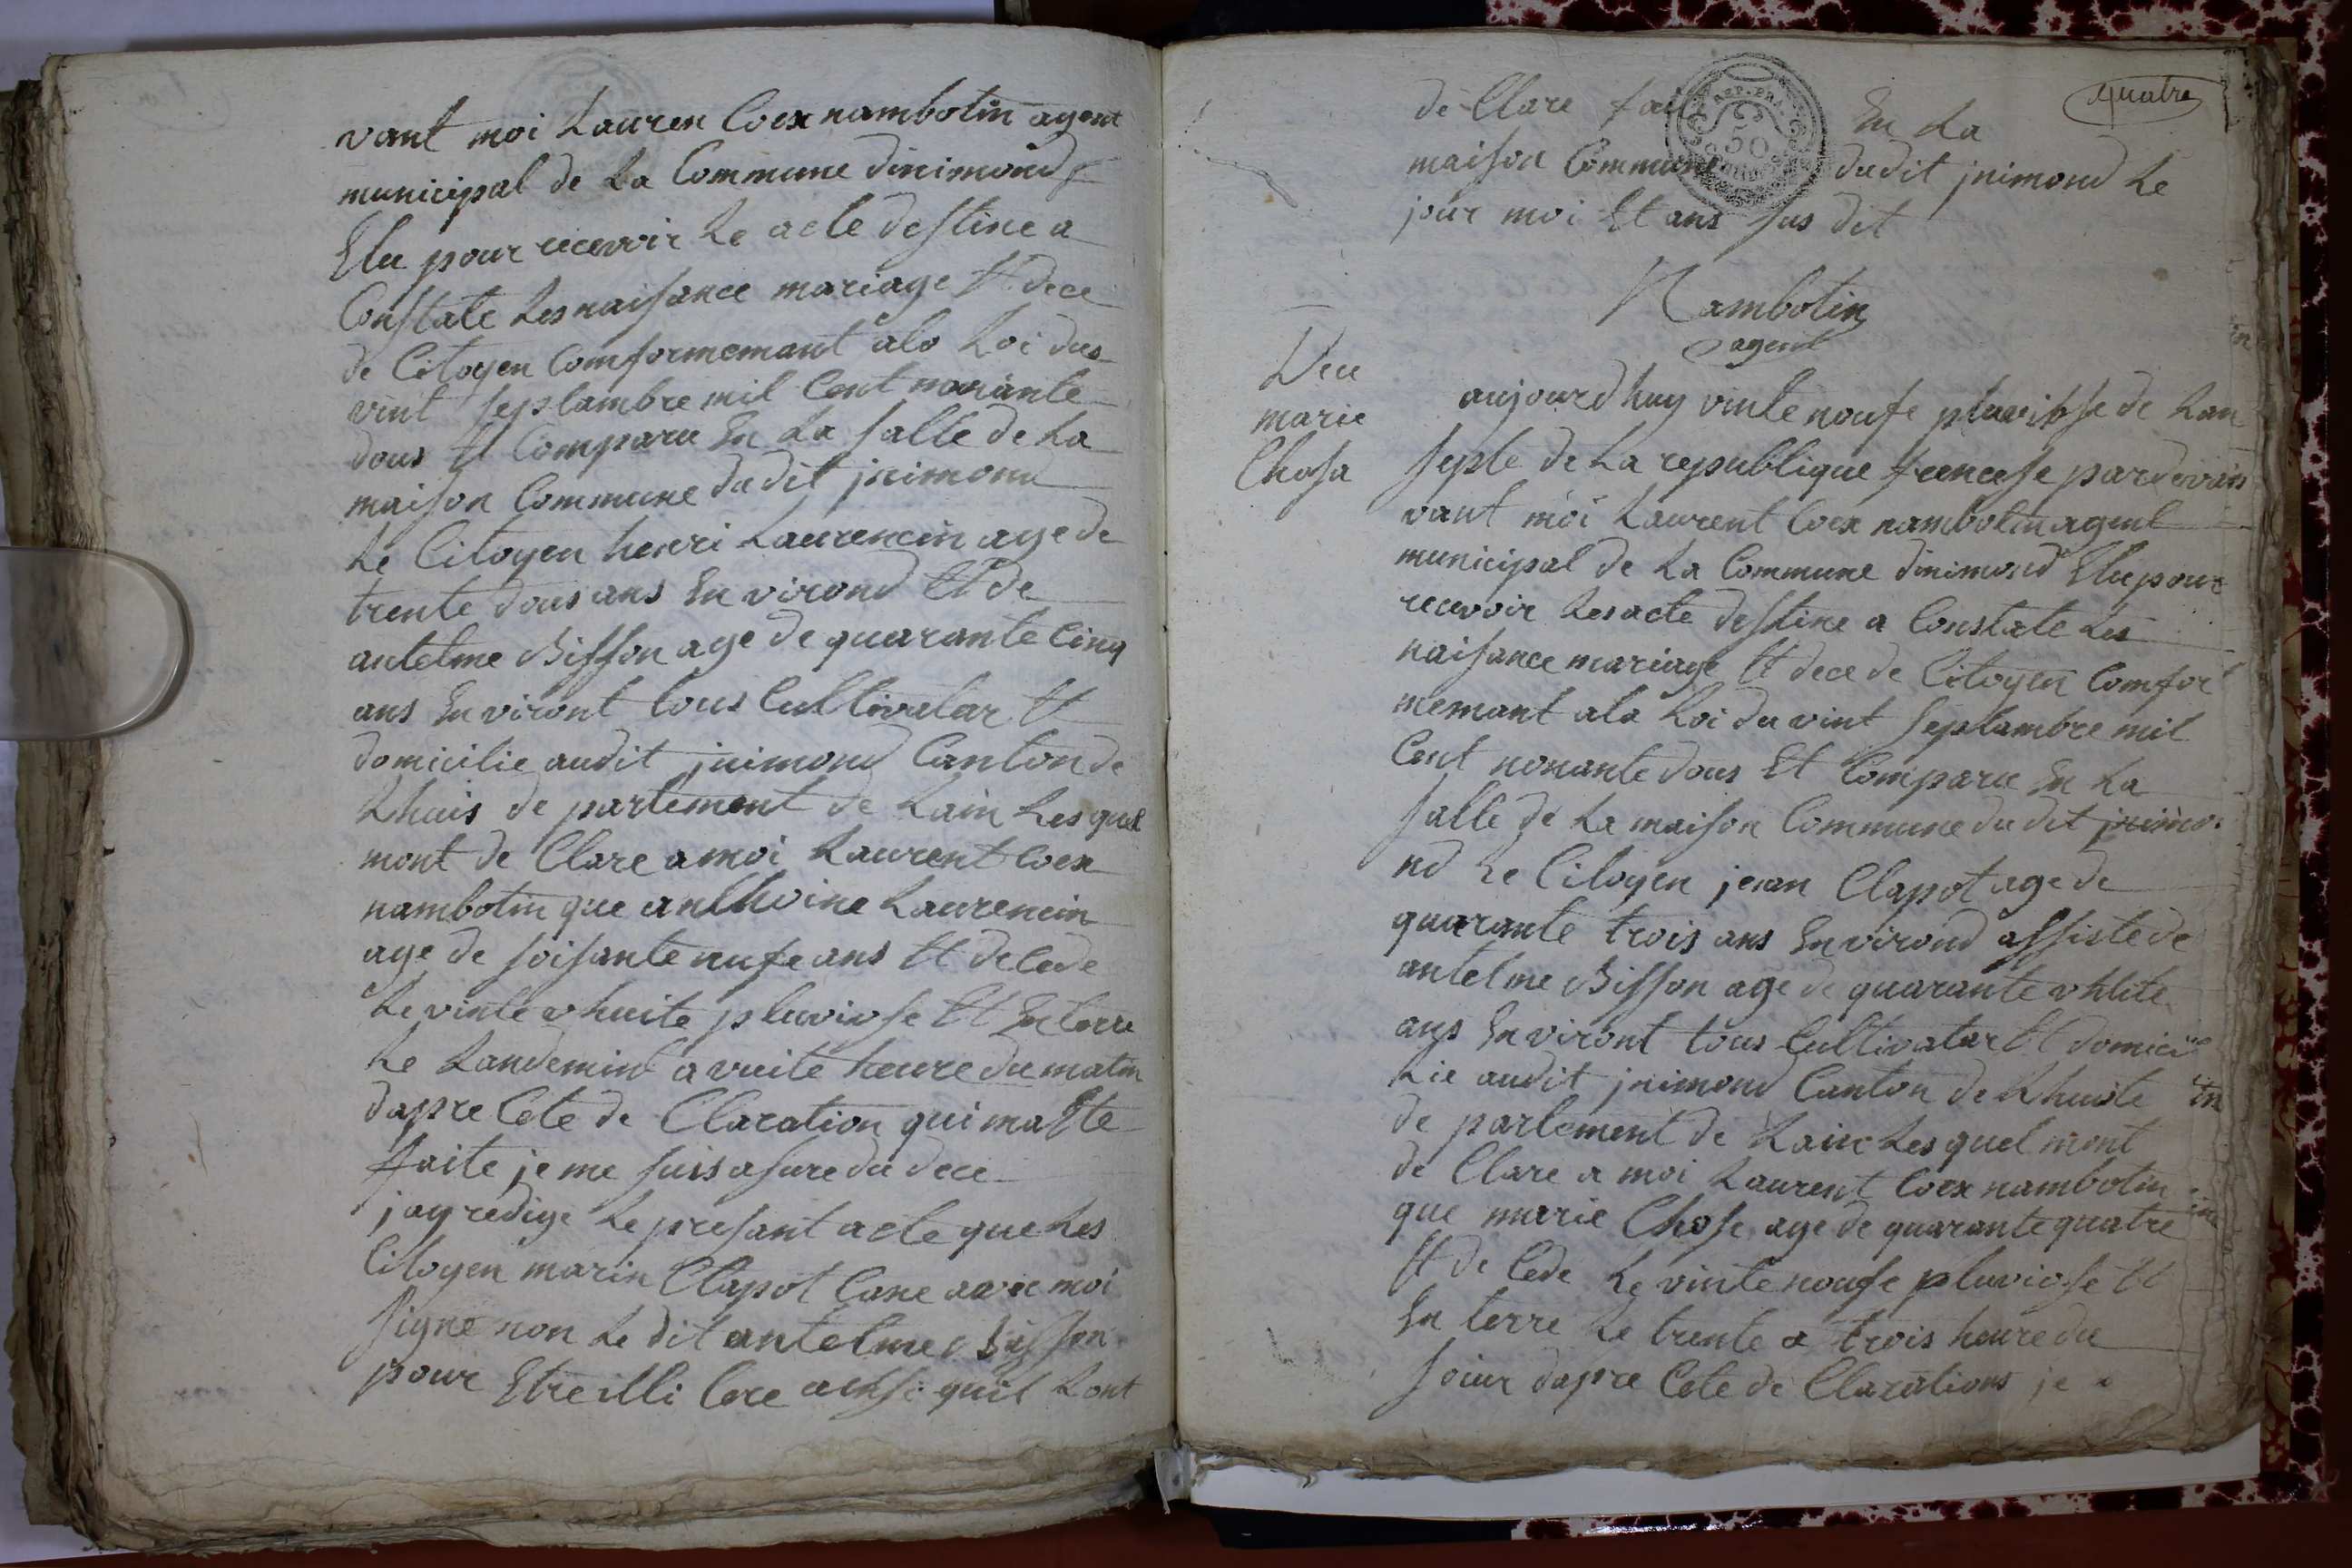 vant moi Lauren Coex nambotin agent
municipal de La Commune dinimond
Elu pour recevoir Le acte destine a
Constate Les naisance mariage Et dece
de Citoyen Comformemant alo Loi dus
vint septambre mil Cent nonante
dous Et Comparu En La salle de La
maison Commune dudit jnimond
Le Citoyen henri Laurencin age de
trente dous ans En virond Et de
antelme Bisson age de quarante Cinq
ans En viront tous Cultivatar Et
domicilie audit jnimond Canton de
Lhuis de partement de Lain Les quel
mont de Clare amoi Laurent Coex
nambotin que anthoine Laurencin
age de soisante nufe ans Et de Cede
Le vinte vhuite pluviose Et En terre
Le Landemint a vuite heure du matin
dapre Cete de Claration qui ma Ete
faite je me suis asure du dece
jay redige Le presant acte que Les
Citoyen marin Clapot Cane avec moi
signe non Le dit antelme Bisson
pour Etre illi Cere ainsi quil Lont
quatre
de Clare fait En La
maison Commune dudit jnimond Le
jour moi Et ans sus dit
Nambotin
agent
Dece
marie
Chosa
aujourdhuy vinte noufe pluviose de Lan
septe de La republique francese par devan
vant moi Laurent Coex nambotin agent
municipal de La Commune dinimond Elu pour
recevoir Les acte destine a Constate Les
naisance mariage Et dece de Citoyen Comfor
memant ala Loi du vint septambre mil
Cent nonante dous Et Comparu En La
salle de La maison Commune du dit jnimo
nd Le Citoyen jean Clapot age de
quarante trois ans En virond assiste de
antelme Bisson age de quarante vhite
ans En viront tous Cultivatar Et domici
Lie audit jnimond Canton de Lhuiste
de partement de Lain Les quel mont
de Clare a moi Laurent Coex nambotin
que marie Chose age de quarante quatre
Et de Cede Le vinte noufe pluviose Et
En terre Le trente a trois heure du
soiur dapre Cete de Clarations je